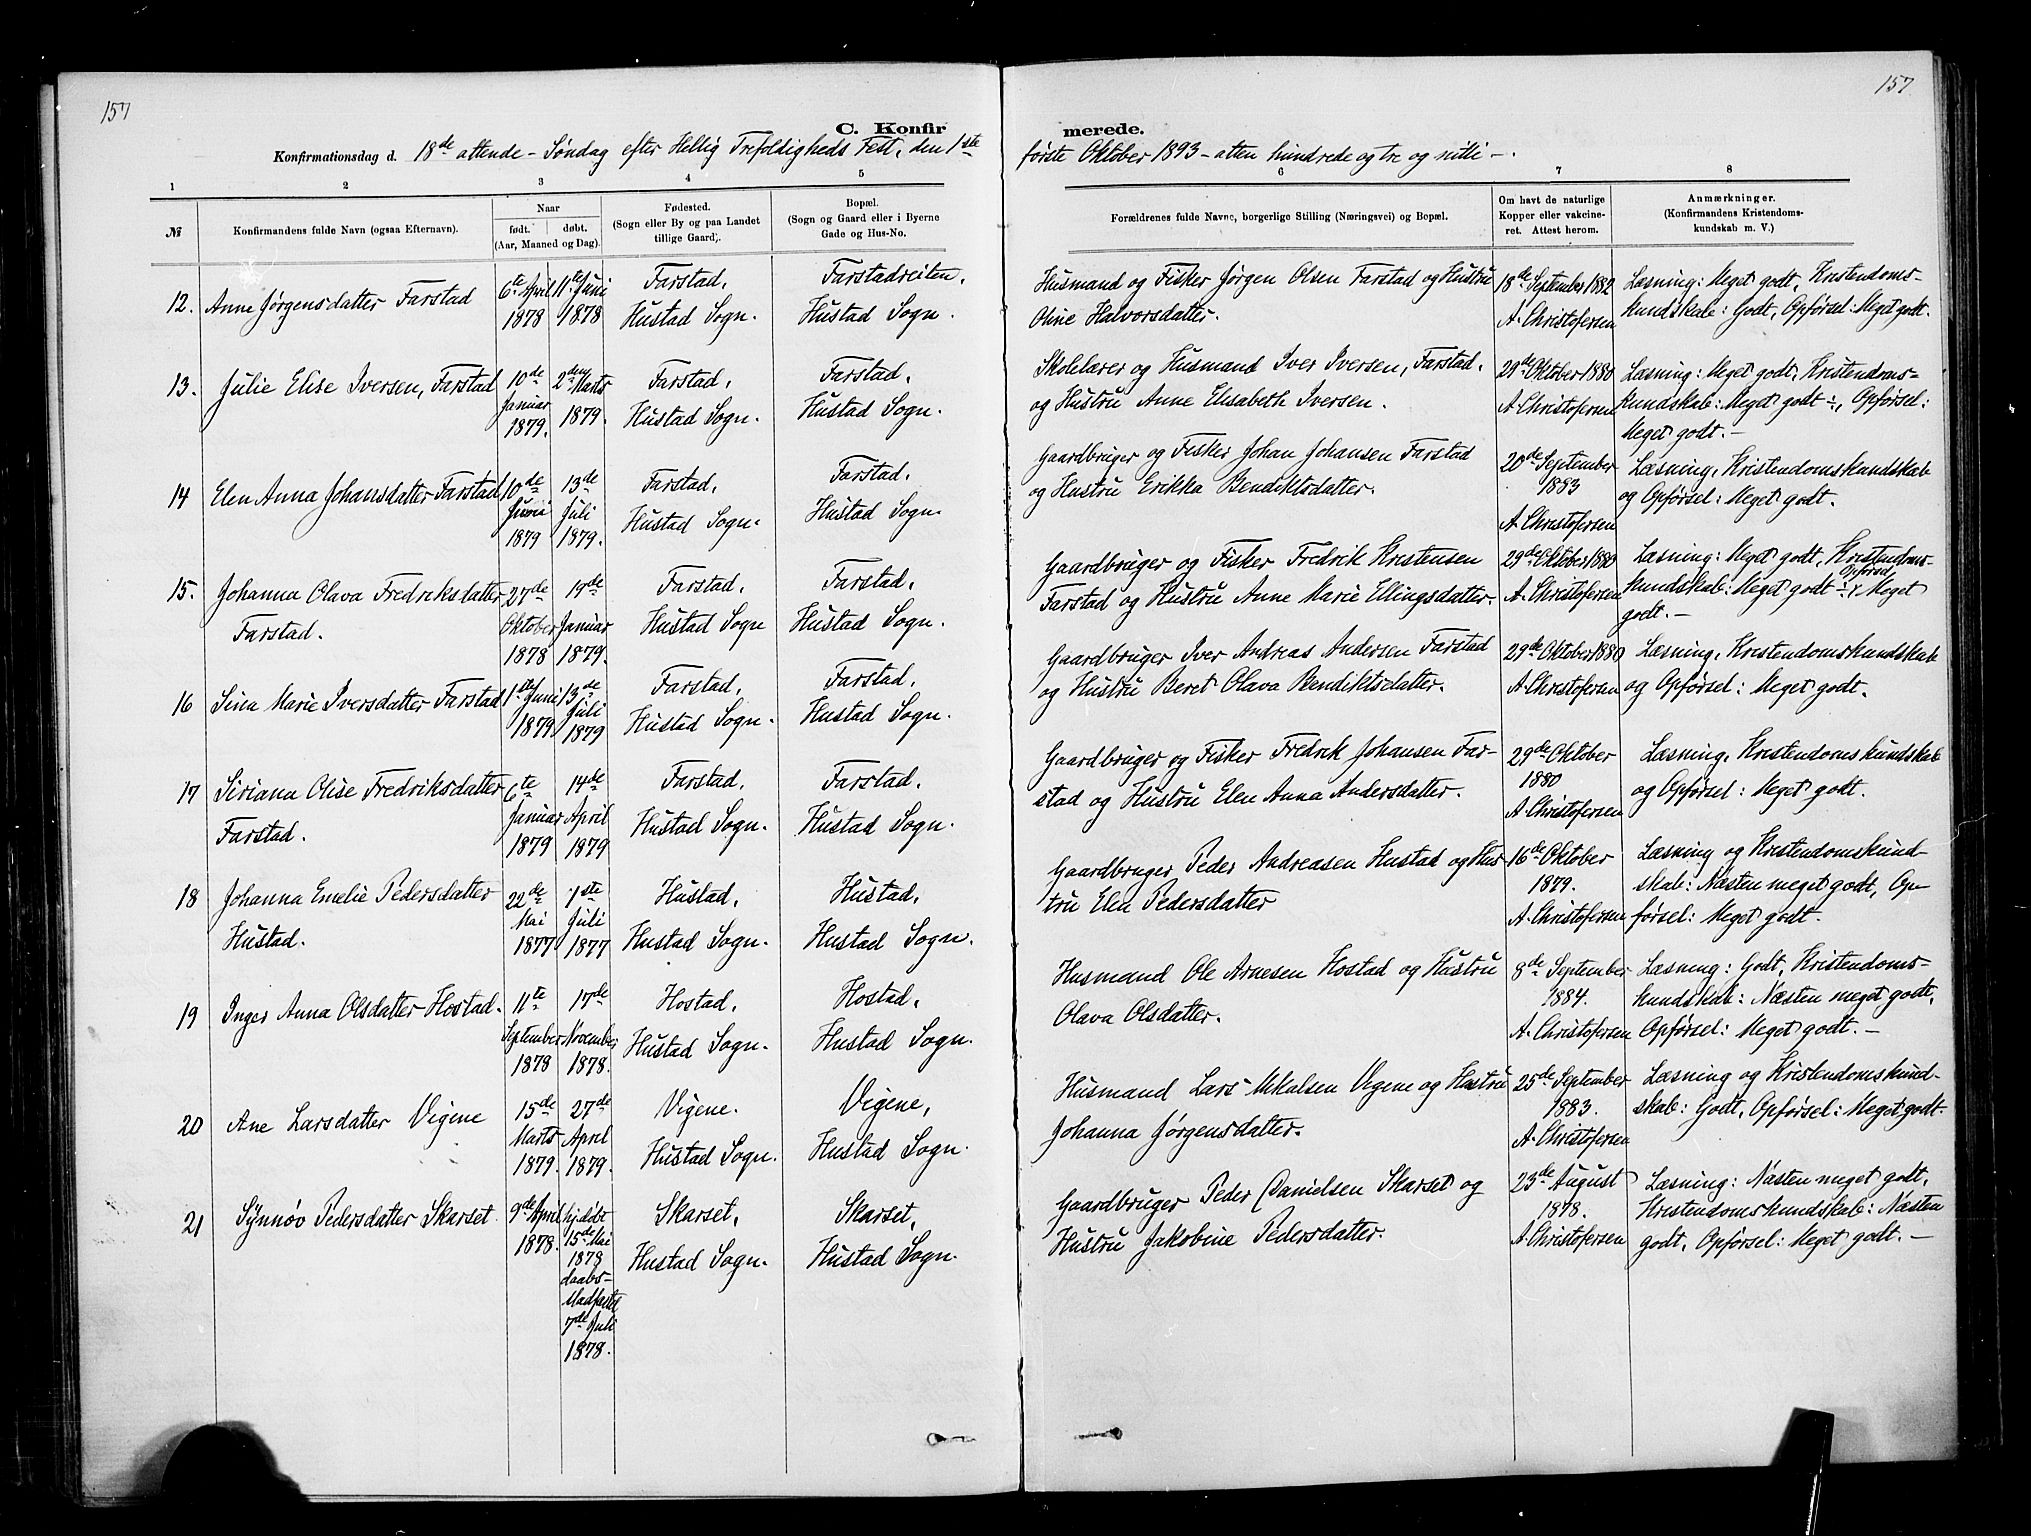 157
157
C. Konfirmerede.
Konfirmationsdag d. 18de attende - Søndag efter Hellig Trefoldigheds Fest, den 1ste første Oktober 1893 - atten hundrede og tre og nitti -.
1 2 3 4 5 6 7 8
№ Konfirmandens fulde Navn (ogsaa Efternavn). Naar født. døbt. (Aar, Maaned og Dag). Fødested. (Sogn eller By og paa Landet tillige Gaard). Bopæl. (Sogn og Gaard eller i Byerne Gade og Hus-No. Forældrenes fulde Navne, borgerlige Stilling (Næringsvei) og Bopæl. Om havt de naturlige Kopper eller vakcineret. Attest herom. Anmærkninger. (Konfirmandens Kristendomskundskab m. V.)
12. Anne Jørgensdatter Farstad 6te April 1878 11te Juni 1878 Farstad, Hustad Sogn. Farstadreiten, Hustad Sogn. Husmand og Fisker Jørgen Olsen Farstad og Hustru Oline Halvorsdatter. 18de September 1882 A. Christofersen Læsning: Meget godt, Kristendomskundskab: Godt, Opførsel: Meget godt.
13. Julie Elise Iversen, Farstad 10de Januar 1879. 2den Marts 1879. Farstad, Hustad Sogn. Farstad, Hustad Sogn. Skolelærer og Husmand Iver Iversen, Farstad. og Hustru Anne Elisabeth Iversen. 29de Oktober 1880 A. Christofersen Læsning: Meget godt, Kristendomskundskab: Meget godt ÷, Opførsel: Meget godt. -
14 Elen Anna Johansdatter Farstad 10de Juni 1879 13de Juli 1879. Farstad, Hustad Sogn. Farstad, Hustad Sogn. Gaardbruger og Fisker Johan Johansen Farstad og Hustru Erikka Bendiktsdatter. 20de September 1883 A. Christofersen Læsning, Kristendomskundskab og Opførsel: Meget godt.
15. Johanna Olava Fredriksdatter Farstad. 27de Oktober 1878 19de Januar 1879. Farstad, Hustad Sogn Farstad, Hustad Sogn. Gaardbruger og Fisker Fredrik Kristensen Farstad og Hustru Anne Marie Ellingsdatter. 29de Oktober 1880 A. Christofersen Læsning: Meget godt, Kristendomskundskab: Meget godt ÷, Opførsel Meget godt. -
16 Sina Marie Iversdatter Farstad 1ste Juni 1879. 13de Juli 1879 Farstad, Hustad Sogn. Farstad, Hustad Sogn. Gaardbruger Iver Andreas Andersen Farstad og Hustru Beret Olava Bendiktsdatter. 29de Oktober 1880 A. Christofersen Læsning, Kristendomskundskab og Opførsel: Meget godt.
17 Siriana Olise Fredriksdatter Farstad. 6te Januar 1879 14de April 1879 Farstad, Hustad Sogn. Farstad, Hustad Sogn. Gaardbruger og Fisker Fredrik Johansen Farstad og Hustru Elen Anna Andersdatter. 29de Oktober 1880 A. Christofersen Læsning, Kristendomskundskab og Opførsel: Meget godt.
18 Johanna Emelie Pedersdatter Hustad. 22de Mai 1877 1ste Juli 1877 Hustad, Hustad Sogn. Hustad, Hustad Sogn. Gaardbruger Peder Andreasen Hustad og Hustru Elen Pedersdatter 16de Oktober 1879. A. Christofersen Læsning og Kristendomskundskab: Næsten meget godt, Opførsel: Meget godt.
19 Inger Anna Olsdatter Hostad. 11te September 1878 17de November 1878. Hostad, Hustad Sogn. Hostad, Hustad Sogn. Husmand Ole Arnesen Hostad og Hustru Olava Olsdatter. 8de September 1884. A. Christofersen Læsning: Godt, Kristendomskundskab: Næsten meget godt, Opførsel: Meget godt. -
20 Ane Larsdatter Vigene 15de Marts 1879. 27de April 1879. Vigene. Hustad Sogn. Vigene, Hustad Sogn. Husmand Lars Mikalsen Vigene og Hustru Johanna Jørgensdatter. 25de September 1883. A. Christofersen Læsning og Kristendomskundskab: Godt, Opførsel: Meget godt.
21 Synnøv Pedersdatter Skarset 9de April 1878. hj. døbt 15de Mai 1878 daabsstadfæstet 7de Juli 1878. Skarset, Hustad Sogn. Skarset, Hustad Sogn. Gaardbruger Peder Danielsen Skarset og Hustru Jakobine Pedersdatter. 23de August 1878. A. Christofersen Læsning: Næsten meget godt, Kristendomskundskab: Næsten godt, Opførsel: Meget godt. -